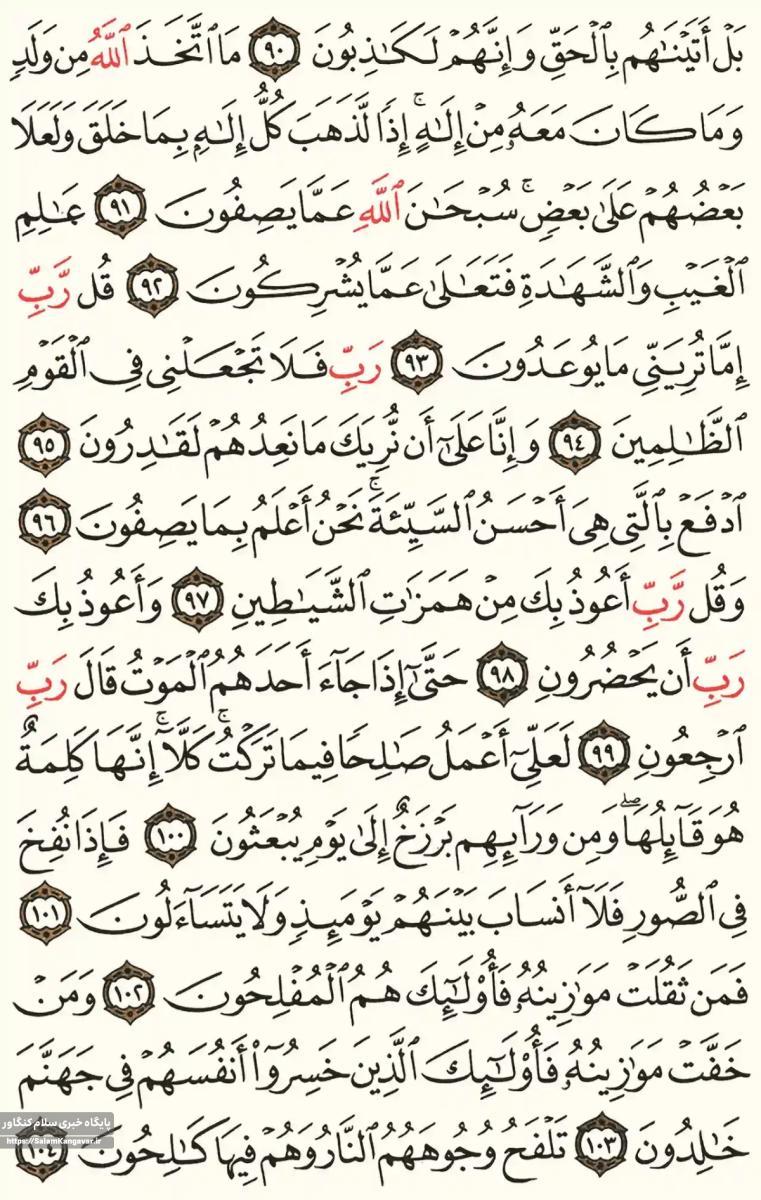 بَلْ أَتَيْنَٰهُم بِٱلْحَقِّ وَإِنَّهُمْ لَكَٰذِبُونَ ٩٠ مَا ٱتَّخَذَ ٱللَّهُ مِن وَلَدٍ
وَمَا كَانَ مَعَهُۥ مِنْ إِلَٰهٍ ۚ إِذًا لَّذَهَبَ كُلُّ إِلَٰهٍۭ بِمَا خَلَقَ وَلَعَلَا
بَعْضُهُمْ عَلَىٰ بَعْضٍ ۚ سُبْحَٰنَ ٱللَّهِ عَمَّا يَصِفُونَ ٩١ عَٰلِمِ
ٱلْغَيْبِ وَٱلشَّهَٰدَةِ فَتَعَٰلَىٰ عَمَّا يُشْرِكُونَ ٩٢ قُل رَّبِّ
إِمَّا تُرِيَنِّي مَا يُوعَدُونَ ٩٣ رَبِّ فَلَا تَجْعَلْنِي فِي ٱلْقَوْمِ
ٱلظَّٰلِمِينَ ٩٤ وَإِنَّا عَلَىٰٓ أَن نُّرِيَكَ مَا نَعِدُهُمْ لَقَٰدِرُونَ ٩٥
ٱدْفَعْ بِٱلَّتِي هِيَ أَحْسَنُ ٱلسَّيِّئَةَ ۚ نَحْنُ أَعْلَمُ بِمَا يَصِفُونَ ٩٦
وَقُل رَّبِّ أَعُوذُ بِكَ مِنْ هَمَزَٰتِ ٱلشَّيَٰطِينِ ٩٧ وَأَعُوذُ بِكَ
رَبِّ أَن يَحْضُرُونِ ٩٨ حَتَّىٰٓ إِذَا جَآءَ أَحَدَهُمُ ٱلْمَوْتُ قَالَ رَبِّ
ٱرْجِعُونِ ٩٩ لَعَلِّيٓ أَعْمَلُ صَٰلِحًا فِيمَا تَرَكْتُ ۚ كَلَّآ ۚ إِنَّهَا كَلِمَةٌ
هُوَ قَآئِلُهَا ۖ وَمِن وَرَآئِهِم بَرْزَخٌ إِلَىٰ يَوْمِ يُبْعَثُونَ ١٠٠ فَإِذَا نُفِخَ
فِي ٱلصُّورِ فَلَآ أَنسَابَ بَيْنَهُمْ يَوْمَئِذٍ وَلَا يَتَسَآءَلُونَ ١٠١
فَمَن ثَقُلَتْ مَوَٰزِينُهُۥ فَأُو۟لَٰٓئِكَ هُمُ ٱلْمُفْلِحُونَ ١٠٢ وَمَنْ
خَفَّتْ مَوَٰزِينُهُۥ فَأُو۟لَٰٓئِكَ ٱلَّذِينَ خَسِرُوٓا۟ أَنفُسَهُمْ فِي جَهَنَّمَ
خَٰلِدُونَ ١٠٣ تَلْفَحُ وُجُوهَهُمُ ٱلنَّارُ وَهُمْ فِيهَا كَٰلِحُونَ ١٠٤
پایگاه خبری سلام کنگاور
https://SalamKangavar.ir